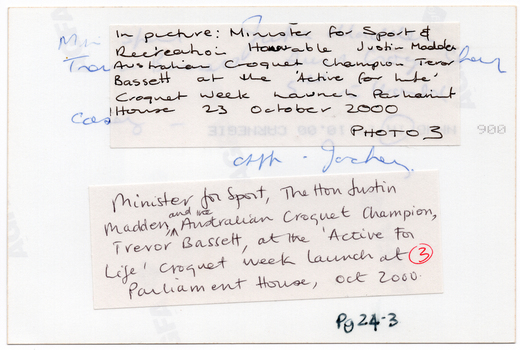 In picture: Minister for Sport &
Recreation Honourable Justin Madden
Australian Croquet Champion - Trevor
Bassett at the 'Active for Life'
Croquet Week Launch Parliament
House 23 October 2000
PHOTO 3
900
Minister for Sport, The Hon Justin
Madden, and the Australian Croquet Champion,
Trevor Bassett, at the 'Active For
Life' Croquet Week launch at 3
Parliament House, Oct 2000.
Pg 24-3